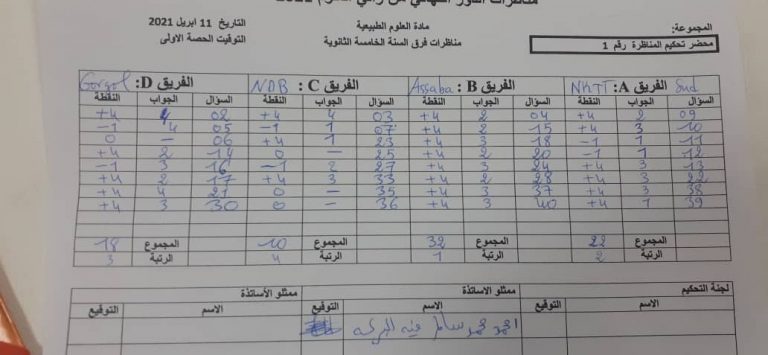 المجموعة: مادة العلوم الطبيعية التاريخ 11 ابريل 2021
محضر تحكيم المناظرة رقم 1 مناظرات فرق السنة الخامسة الثانوية التوقيت الحصة الاولى
الفريق A: NKTT Sud الفريق B: Assaba الفريق C: NDB الفريق D: Gorgol
السؤال الجواب النقطة السؤال الجواب النقطة السؤال الجواب النقطة السؤال الجواب النقطة
09 2 +4 04 2 +4 03 4 +4 02 4 +4
10 3 +4 15 2 +4 07 1 -1 05 4 -1
11 1 -1 18 3 +4 23 1 +4 06 – 0
12 1 -1 20 2 +4 25 – 0 14 2 +4
13 3 +4 24 3 +4 27 2 -1 16 3 -1
22 3 +4 28 2 +4 33 3 +4 17 2 +4
38 3 +4 37 3 +4 35 – 0 21 4 +4
39 1 +4 40 3 +4 36 – 0 30 3 +4
المجموع 22 المجموع 32 المجموع 10 المجموع 18
الرتبة 2 الرتبة 1 الرتبة 4 الرتبة 3
لجنة التحكيم ممثلو الأساتذة ممثلو الأساتذة
الاسم التوقيع الاسم التوقيع الاسم التوقيع
احمد محمد سالم